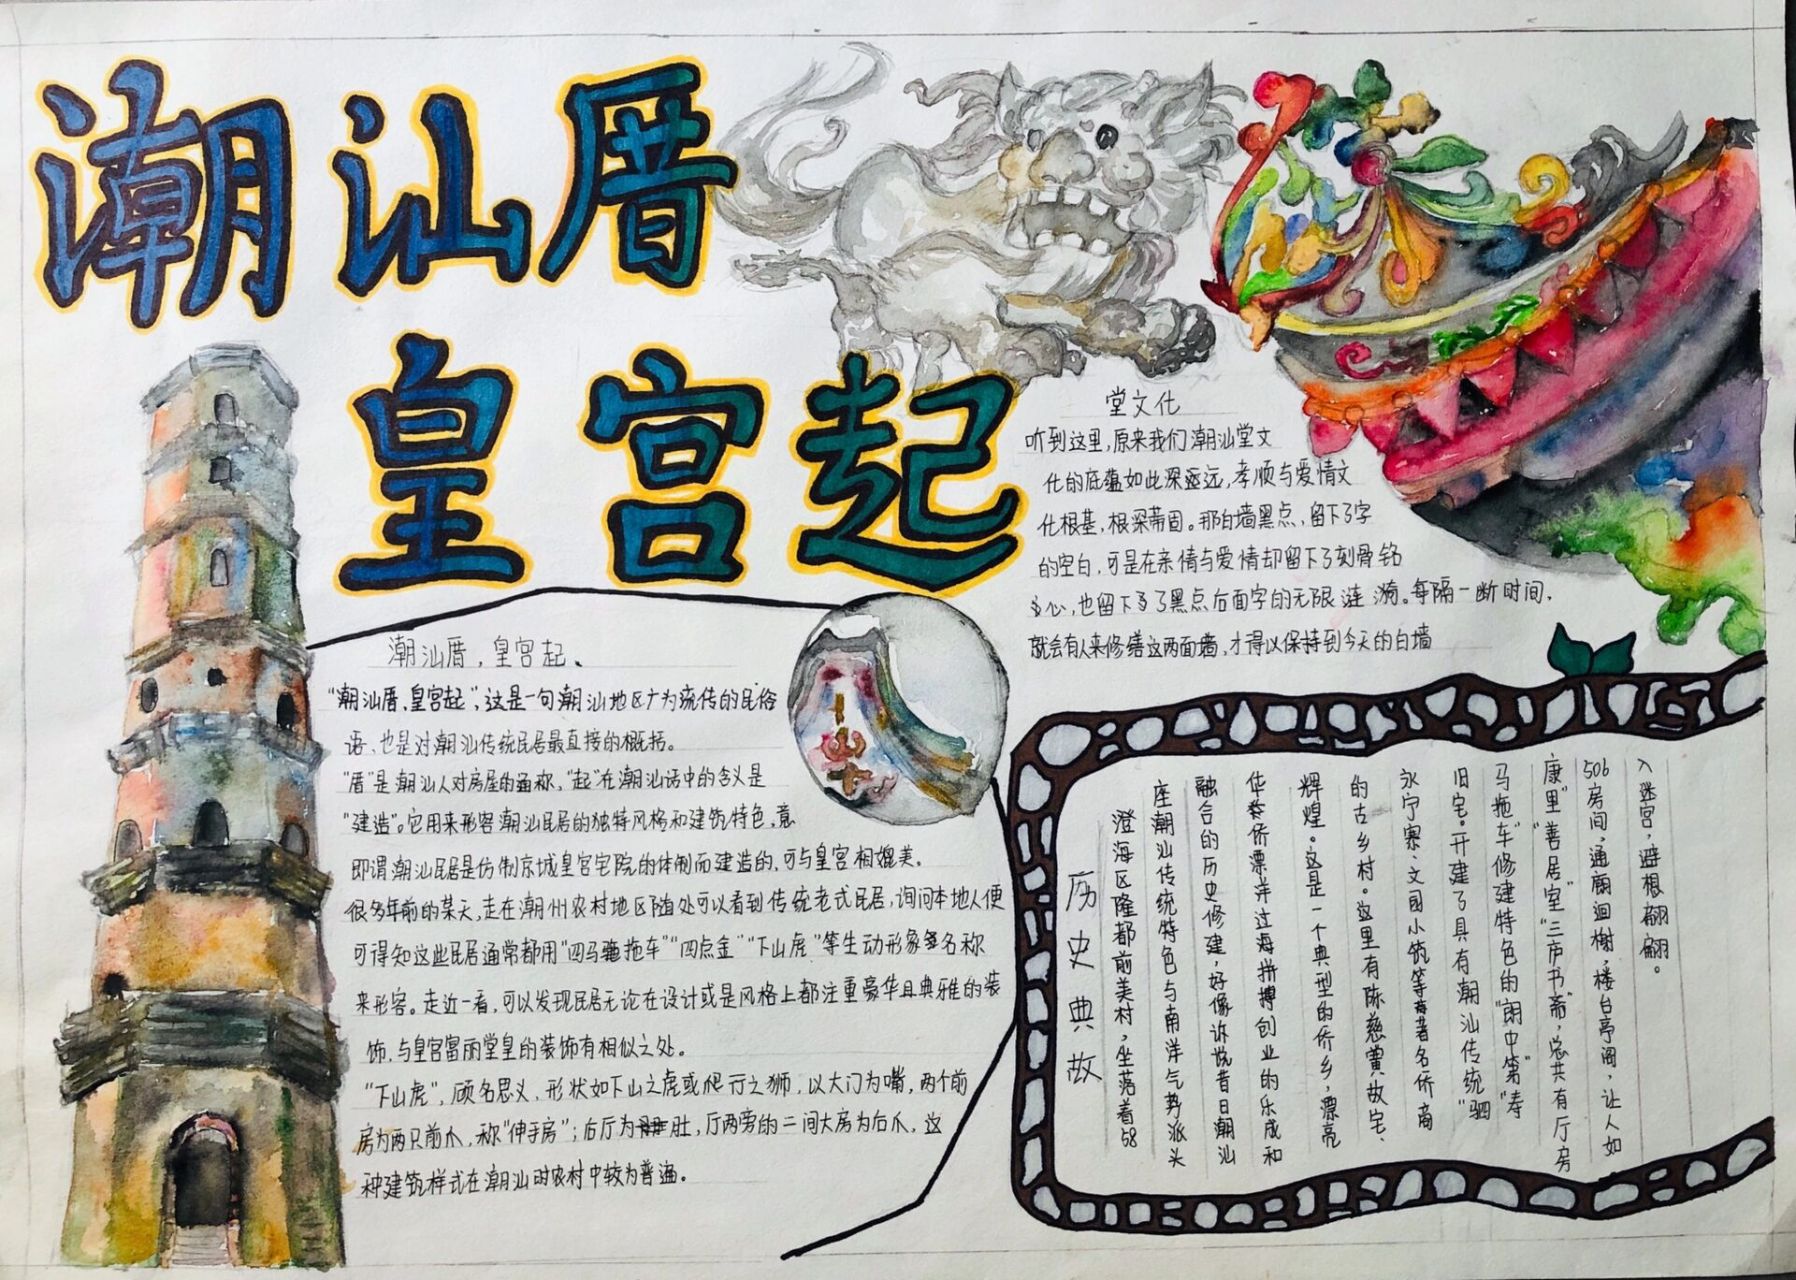 潮汕厝
皇宫起
堂文化
听到这里,原来我们潮汕堂文
化的底蕴如此深远,孝顺与爱情文
化根基,根深蒂固。那白墙黑点,留下了字
的空白,可是在亲情与爱情却留下了刻骨铭
心,也留下了黑点后面字的无限涟漪。每隔一断时间,
就会有人来修缮这两面墙,才得以保持到今天的白墙
潮汕厝,皇宫起、
“潮汕厝,皇宫起”,这是一句潮汕地区广为流传的民俗
语,也是对潮汕传统民居最直接的概括。
“厝”是潮汕人对房屋的通称,“起”在潮汕话中的含义是
“建造”。它用来形容潮汕民居的独特风格和建筑特色,意
即谓潮汕民居是仿制京城皇宫宅院的体制而建造的,可与皇宫相媲美。
很多年前的某天,走在潮州农村地区随处可以看到传统老式民居,询问本地人便
可得知这些民居通常都用“四马拖车”“四点金”“下山虎”等生动形象名称
来形容。走近一看,可以发现民居无论在设计或是风格上都注重豪华且典雅的装
饰,与皇宫富丽堂皇的装饰有相似之处。
“下山虎”,顾名思义,形状如下山之虎或爬行之狮,以大门为嘴,两个前
房为两只前爪,称“伸手房”;后厅为肚,厅两旁的二间大房为后爪,这
种建筑样式在潮汕的农村中较为普遍。
历史典故
澄海区隆都前美村,坐落着58
座潮汕传统特色与南洋气势派头
融合的历史修建,好像诉说昔日潮汕
华侨漂洋过海拼搏创业的乐成和
辉煌。这是一个典型的侨乡,漂亮
的古乡村。这里有陈慈黉故宅、
永宁寨、文园小筑等著名侨商
旧宅。开建了具有潮汕传统“驷
马拖车”修建特色的“朗中第”“寿
康里”“善居室”“三庐书斋”,总共有厅房
506房间,通廊迴榭,楼台亭阁,让人如
入迷宫,避根翩翩。